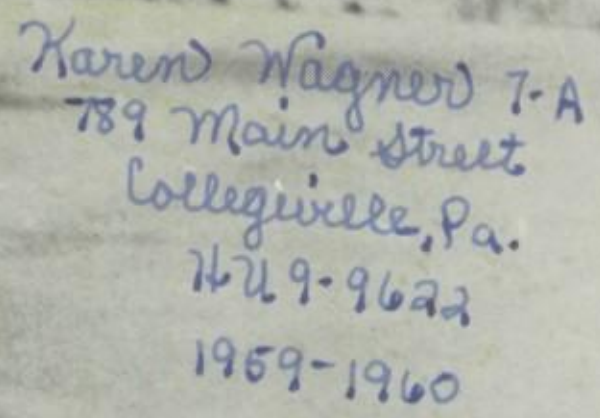 Karen Wagner 7-A
789 Main Street
Collegeville, Pa.
HU 9-9622
1959-1960